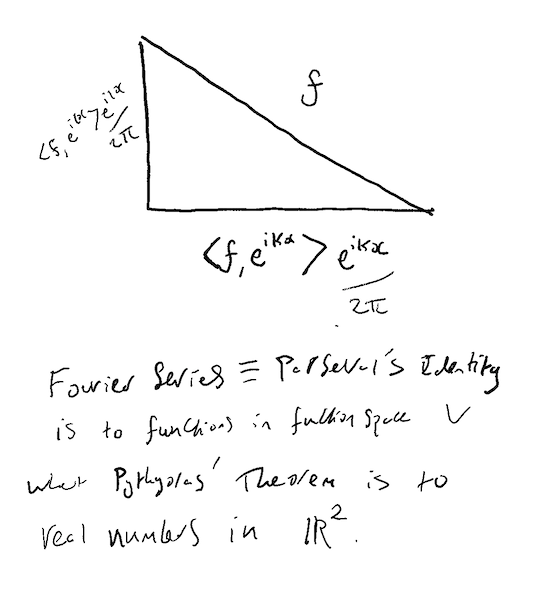 f
<f, e^{ilx}> e^{ilx}/2π
<f, e^{ikx}> e^{ikx}/2π
Fourier Series ≡ Parseval's Identity
is to functions in function space V
what Pythgoras' Theorem is to
real numbers in ℝ².